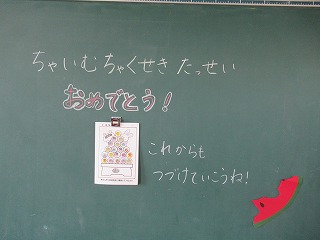 ちゃいむちゃくせき たっせい
おめでとう！
これからも
つづけていこうね！